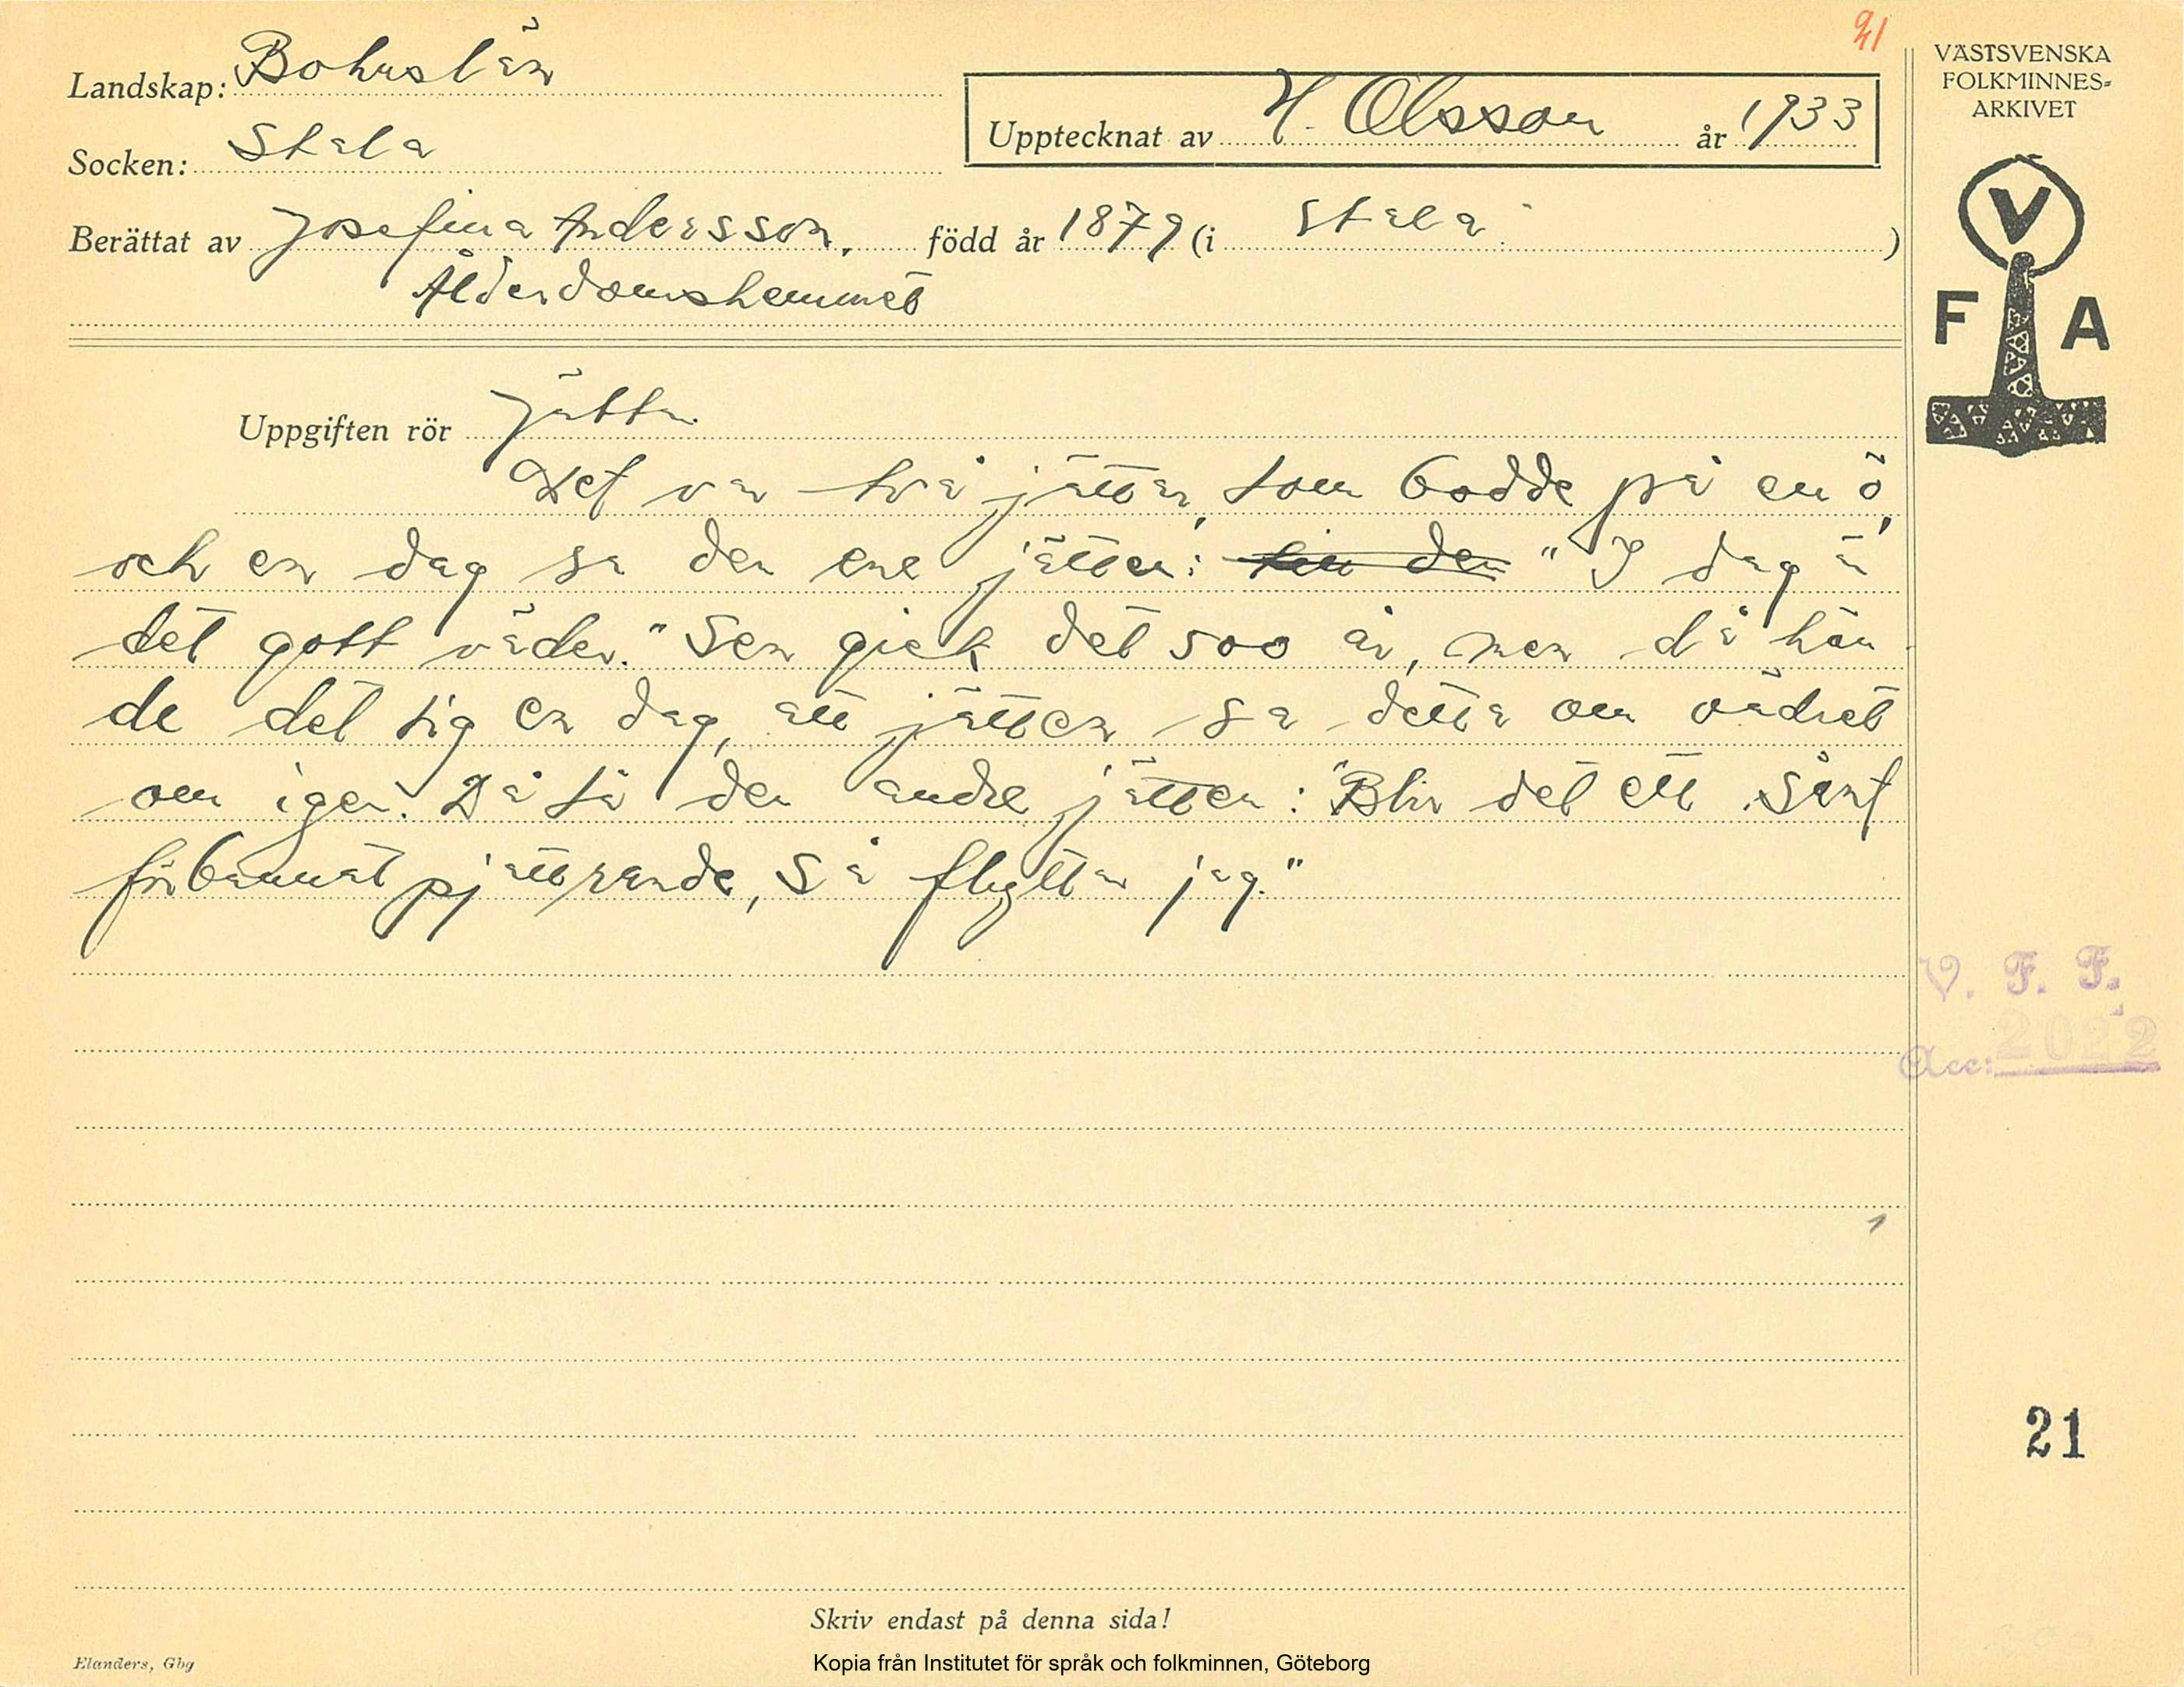 91
VÄSTSVENSKA
FOLKMINNES-
ARKIVET
Landskap: Bohuslän
Upptecknat av H. Olsson år 1933
Socken: Stala
Berättat av Josefina Andersson, född år 1879 (i Stala )
Ålderdomshemmet
V
F A
Uppgiften rör Jättar.
Det var två jättar, som bodde på en ö,
och en dag sa den ene jätten: "I dag ä
det gott väder." Sen gick det 500 år, men då hän
de det sig en dag, att jätten sa detta om vädret
om igen. Då sa den andre jätten: "Blir det ett sånt
förbannat pjättrande, så flyttar jag."
V. F. F.
Acc: 2022
21
Skriv endast på denna sida!
Elanders, Gbg
Kopia från Institutet för språk och folkminnen, Göteborg